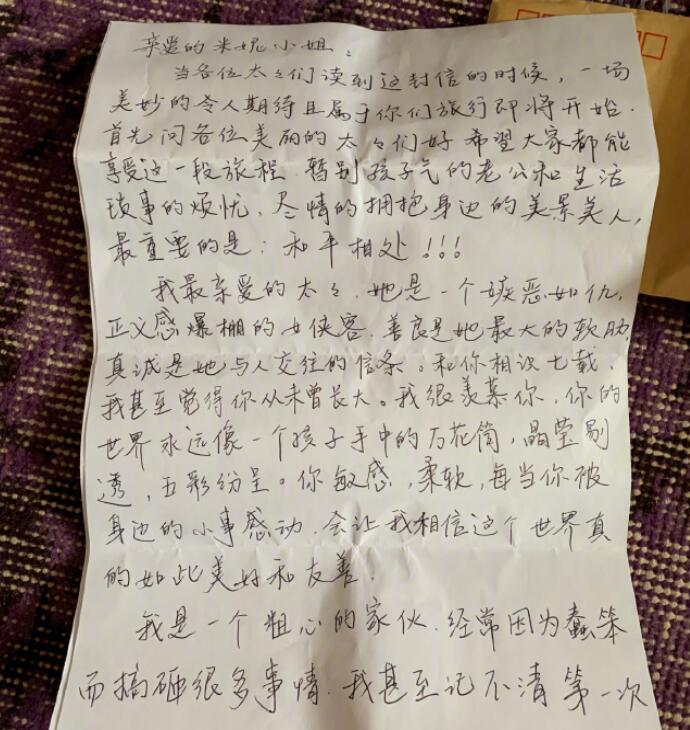 亲爱的米妮小姐：
当各位太太们读到这封信的时候，一场
美妙的令人期待且属于你们旅行即将开始.
首先问各位美丽的太太们好 希望大家都能
享受这一段旅程. 暂别孩子气的老公和生活
琐事的烦忧. 尽情的拥抱身边的美景美人,
最重要的是: 和平相处!!!
我最亲爱的太太. 她是一个嫉恶如仇,
正义感爆棚的女侠客. 善良是她最大的软肋,
真诚是她与人交往的信条。和你相识七载.
我甚至觉得你从未曾长大。我很羡慕你, 你的
世界永远像一个孩子手中的万花筒, 晶莹剔
透, 五彩纷呈。你敏感, 柔软, 每当你被
身边的小事感动. 会让我相信这个世界真
的如此美好和友善.
我是一个粗心的家伙. 经常因为蠢笨
而搞砸很多事情. 我甚至记不清第一次